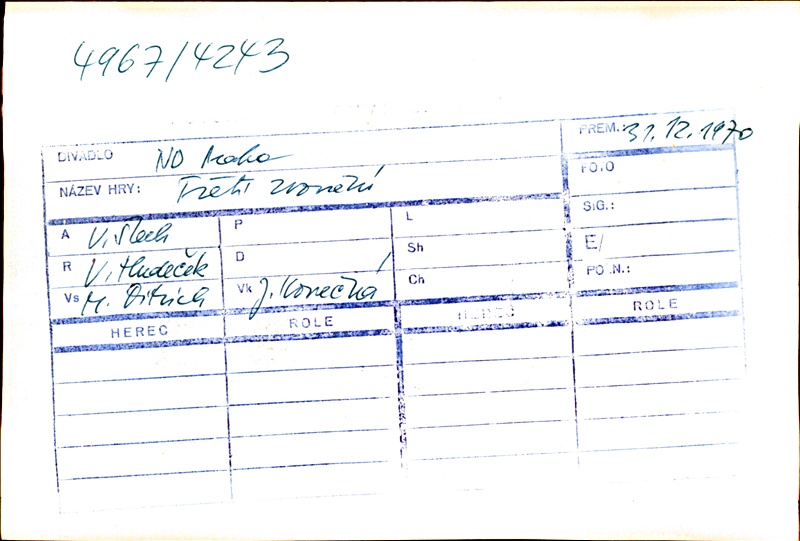 4967/4243
PREM.: 31.12.1970
DIVADLO ND Praha
NÁZEV HRY: Třetí zvonění
FOTO
SIG.:
A V. Štech P L
E/
R V. Hudeček D Sh
PO.N.:
Vs M. Ditrich Vk J. Konečná Ch
HEREC ROLE HEREC ROLE